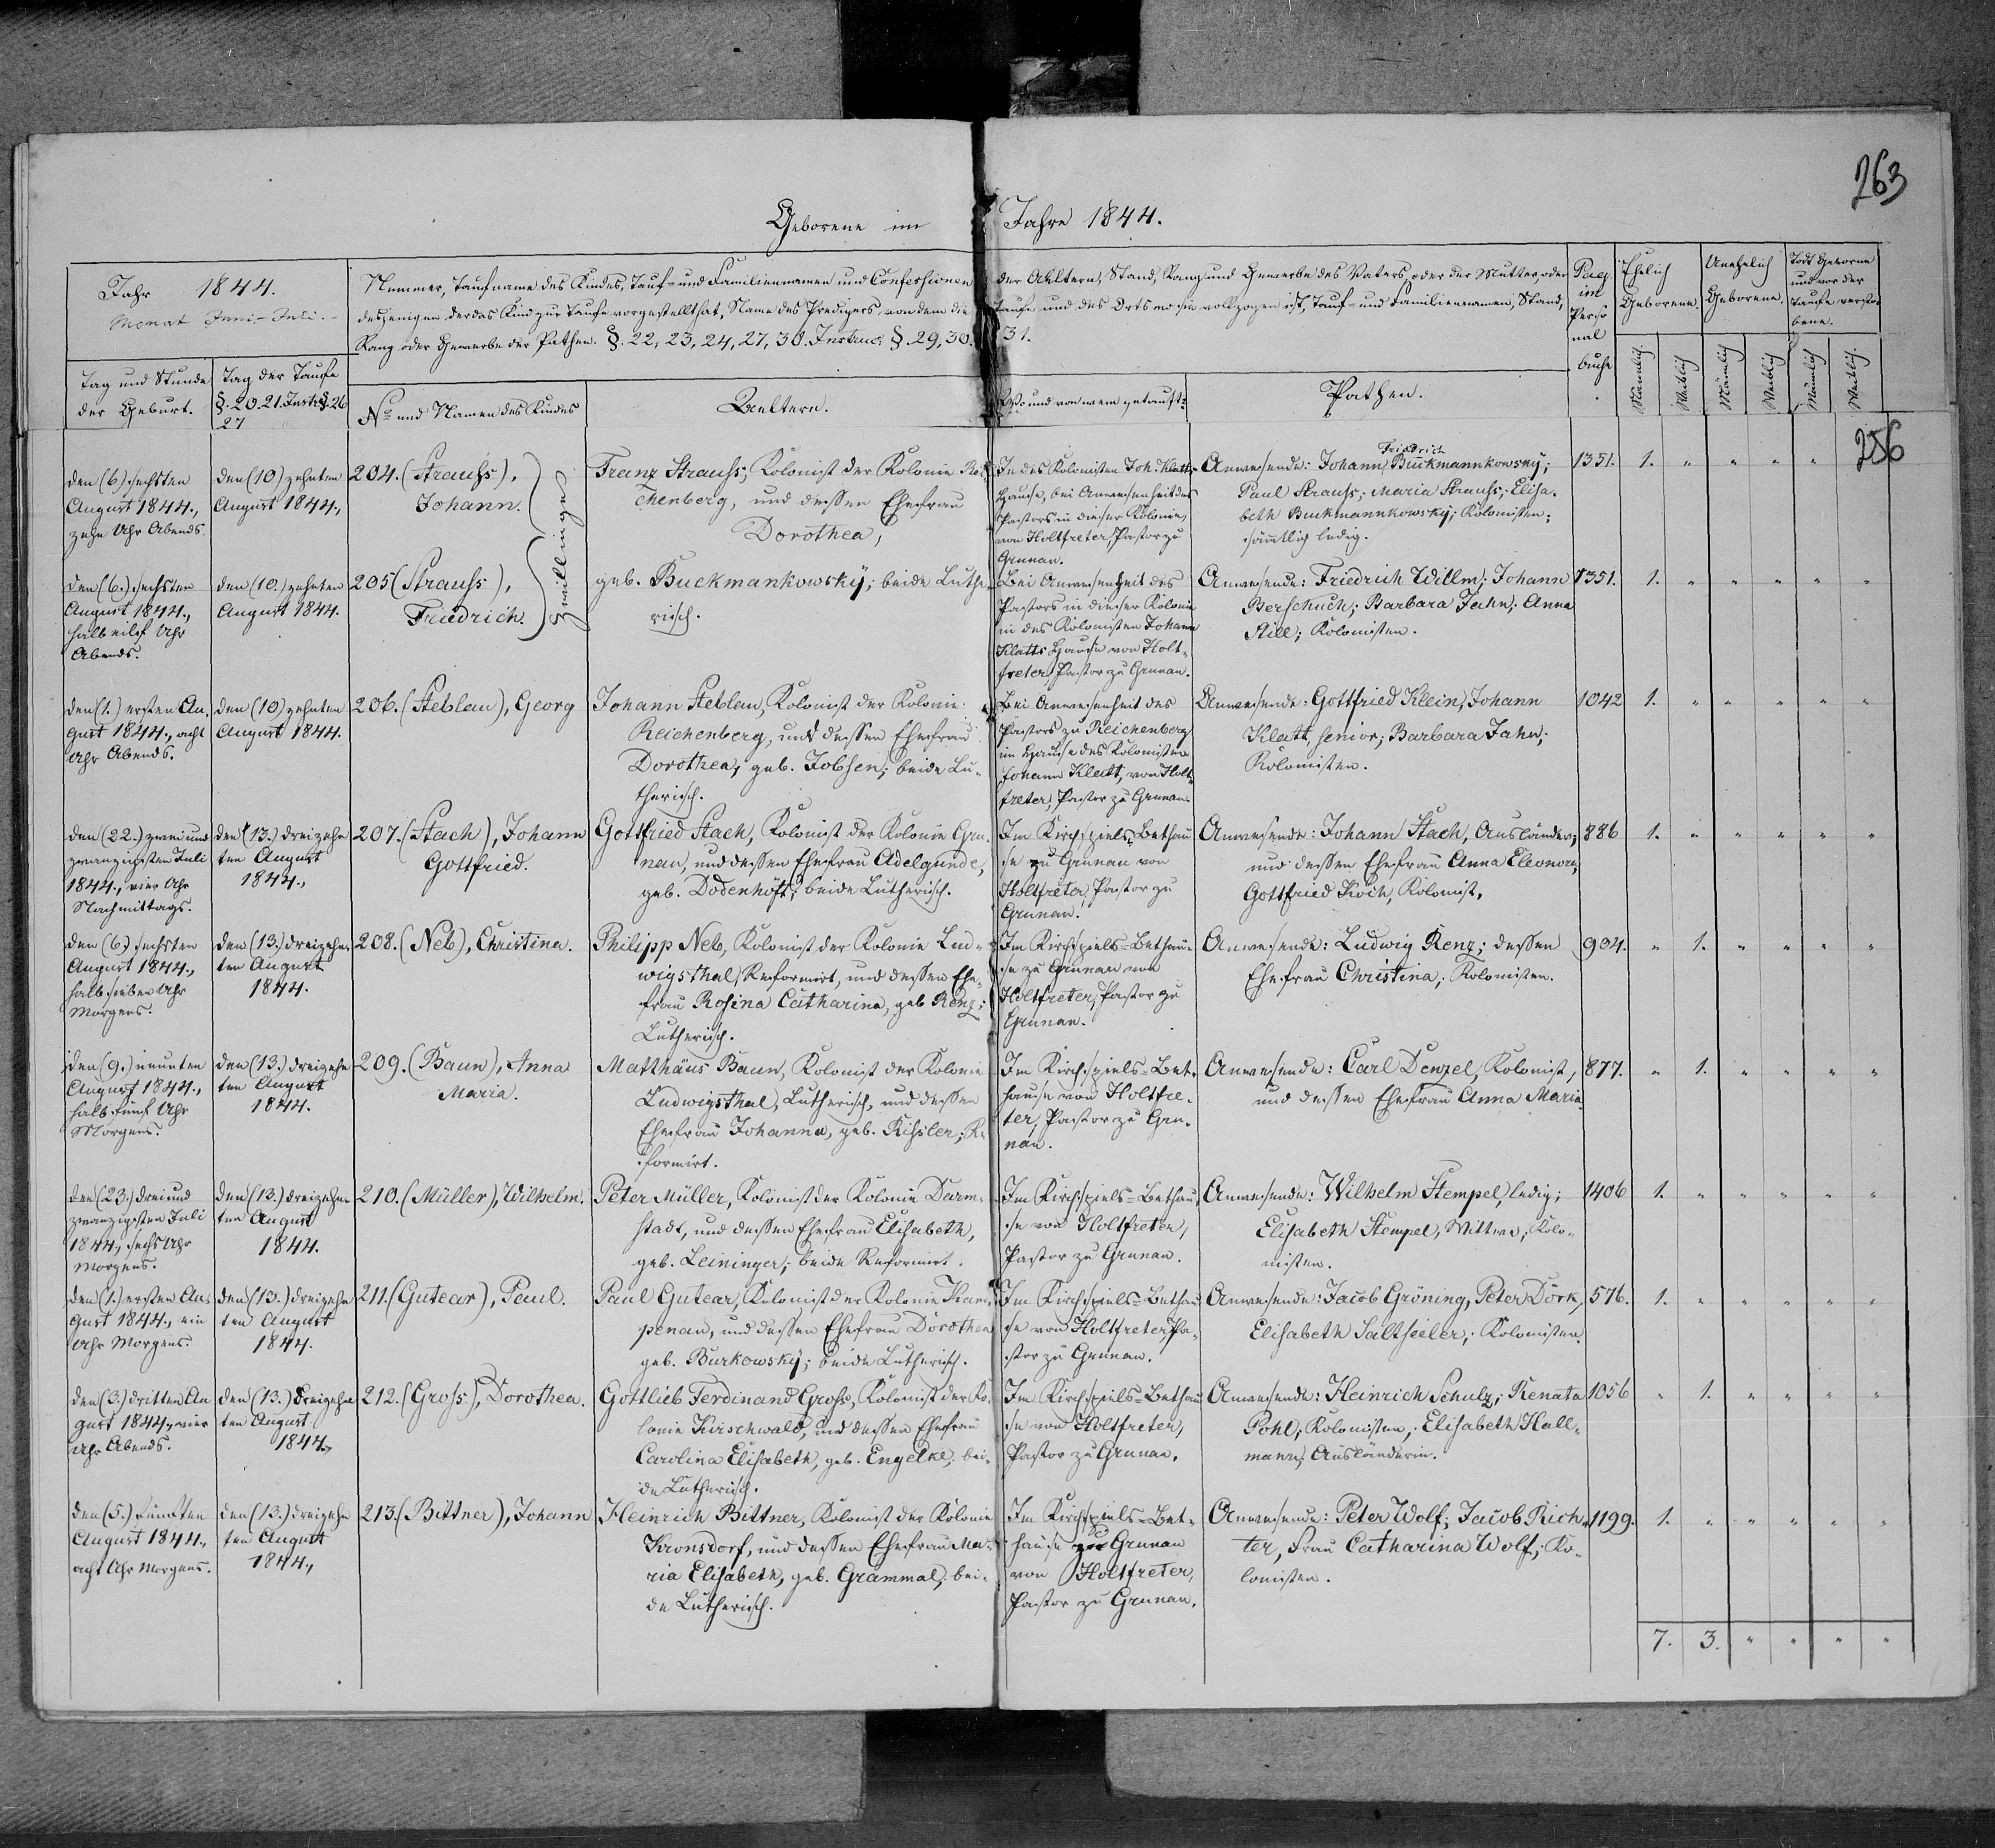 263
Geborene im Jahre 1844.
Jahr 1844.
Monat Juni - Juli. -
Nummer, Taufname des Kindes, Tauf- und Familiennamen und Confessionen der Aeltern, Stand, Rang und Gewerbe des Vaters, oder der Mutter, oder
desjenigen der das Kind zur Taufe vorgestellt hat, Name des Predigers, von dem die Taufe und des Orts wo sie vollzogen ist, Tauf- und Familiennamen, Stand,
Rang oder Gewerbe der Pathen. §. 22, 23, 24, 27, 30. Instruc. §. 29, 30. 31.
Pag.
im
Perso
nal
buche
Ehelich
Geborene.
Unehelich
Geborene.
Todt Geborene
und vor der
Taufe verstor
bene.
Tag und Stunde
der Geburt.
Tag der Taufe
§. 20. 21. Instr. §. 26
27
No und Namen des Kindes
Aeltern.
Wo und von wem getauft.
Pathen.
Männlich.
Weiblich
Männlich
Weiblich
Männlich
Weiblich.
286
den (6.) sechsten
August 1844.,
zehn Uhr Abends.
den (10) zehnten
August 1844.,
204. (Strauss),
Johann.
Zwillinge
Franz Strauss, Kolonist der Kolonie Rei
chenberg, und dessen Ehefrau
Dorothea,
In des Kolonisten Joh. Klatts
Hause, bei Anwesenheit des
Pastors in dieser Kolonie,
von Holtfreter, Pastor zu
Grunau.
Friedrich
Anwesende: Johann Buckmannkowsky;
Paul Strauss; Maria Strauss; Elisa-
beth Buckmannkowsky; Kolonisten;
sämtlich ledig.
1351. 1. " " " "
den (6.) sechsten
August 1844.,
halb eilf Uhr
Abends.
den (10.) zehnten
August 1844.
205 (Strauss),
Friedrich.
geb. Buckmankowsky; beide Luthe-
risch.
Bei Anwesenheit des
Pastors in dieser Kolonie
in des Kolonisten Johann
Klatts Hause von Holt-
freter, Pastor zu Grunau.
Anwesende: Friedrich Willm; Johann
Berschuch; Barbara Jahn; Anna
Still; Kolonisten.
1351. 1. " " " " "
den (1.) ersten Au-
gust 1844., acht
Uhr Abends.
den (10) zehnten
August 1844.
206. (Steblau), Georg
Johann Steblau, Kolonist der Kolonie
Reichenberg, und dessen Ehefrau
Dorothea, geb. Jobsen; beide Lu-
therisch.
Bei Anwesenheit des
Pastors zu Reichenberg
im Hause des Kolonisten
Johann Klatt, von Holt-
freter, Pastor zu Grunau.
Anwesende: Gottfried Klein, Johann
Klatt, senior; Barbara Jahn;
Kolonisten.
1042 1. " " " " "
den (22.) zwei und
zwanzigsten Juli
1844., vier Uhr
Nachmittags.
den (13.) dreizehn
ten August
1844.,
207. (Stach), Johann
Gottfried.
Gottfried Stach, Kolonist der Kolonie Gru-
nau, und dessen Ehefrau Adelgunde,
geb. Dodenhöft; beide Lutherisch.
Im Kirchspiels-Bethau
se zu Grunau von
Holtfreter, Pastor zu
Grunau.
Anwesende: Johann Stach, Ausländer;
und dessen Ehefrau Anna Eleonora;
Gottfried Koch, Kolonist,
886 1. " " " " "
den (6.) sechsten
August 1844.,
halb sieben Uhr
Morgens.
den (13.) dreizehn
ten August
1844.
208. (Neb), Christina.
Philipp Neb, Kolonist der Kolonie Lud-
wigsthal, Reformirt, und dessen Ehe-
frau Rosina Catharina, geb. Renz;
Lutherisch.
Im Kirchspiels-Bethau-
se zu Grunau von
Holtfreter, Pastor zu
Grunau.
Anwesende: Ludwig Renz; dessen
Ehefrau Christina; Kolonisten.
904. " 1. " " " "
den (9.) neunten
August 1844.,
halb fünf Uhr
Morgens.
den (13.) dreizehn
ten August
1844.
209. (Baun), Anna
Maria.
Matthäus Baun, Kolonist der Kolonie
Ludwigsthal, Lutherisch, und dessen
Ehefrau Johanna, geb. Kissler; Re
formirt.
Im Kirchspiels-Bet-
hause von Holtfre-
ter, Pastor zu Gru-
nau.
Anwesende: Carl Denzel, Kolonist,
und dessen Ehefrau Anna Maria.
877. " 1. " " " "
den (23.) drei und
zwanzigsten Juli
1844., sechs Uhr
Morgens.
den (13.) dreizehn
ten August
1844.
210. (Müller), Wilhelm.
Peter Müller, Kolonist der Kolonie Darm-
stadt, und dessen Ehefrau Elisabeth,
geb. Leininger; beide Reformirt.
Im Kirchspiels-Bethau,
se von Holtfreter,
Pastor zu Grunau.
Anwesende: Wilhelm Stempel, ledig;
Elisabeth Stempel, Wittwe; Kolo-
nisten.
1406 1. " " " " "
den (1.) ersten Au-
gust 1844., ein
Uhr Morgens.
den (13.) dreizehn
ten August
1844.
211. (Gutear), Paul.
Paul Gutear, Kolonist der Kolonie Kam-
penau, und dessen Ehefrau Dorothea
geb. Burkowsky; beide Lutherisch.
Im Kirchspiels-Bethau
se von Holtfreter, Pa-
stor zu Grunau.
Anwesende: Jacob Gröning, Peter Dörk,
Elisabeth Saltseiler; Kolonisten.
576. 1. " " " " "
den (3.) dritten Au
gust 1844., vier
Uhr Abends.
den (13.) dreizehn
ten August
1844.,
212. (Gross), Dorothea.
Gottlieb Ferdinand Gross, Kolonist der Ko-
lonie Kirschwald, und dessen Ehefrau
Carolina Elisabeth, geb. Engelke; bei-
de Lutherisch.
Im Kirchspiels-Bethau
se von Holtfreter,
Pastor zu Grunau.
Anwesende: Heinrich Schulz; Renata
Pohl; Kolonisten; Elisabeth Hall-
mann, Ausländerin.
1056 " 1. " " " "
den (5.) fünften
August 1844.,
acht Uhr Morgens.
den (13.) dreizehn
ten August
1844.,
213. (Bittner), Johann
Heinrich Bittner, Kolonist der Kolonie
Kronsdorf, und dessen Ehefrau Ma-
ria Elisabeth, geb. Grammal; bei-
de Lutherisch.
Im Kirchspiels-Bet-
hause zu Grunau
von Holtfreter,
Pastor zu Grunau.
Anwesende: Peter Wolf; Jacob Rich-
ter, Frau Catharina Wolf; Ko-
lonisten.
1199. 1. " " " " "
7. 3. " " " "